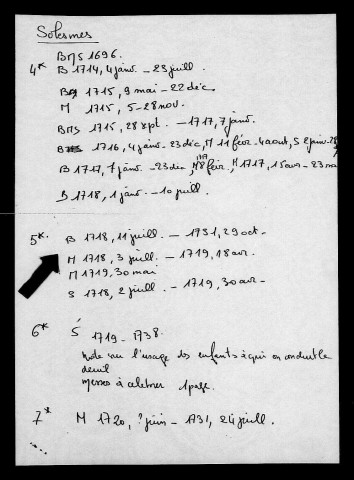 Solesmes
BMS 1696.
4* B 1714, 4 janv. - 23 juill.
B 1715, 9 mai - 22 déc.
M 1715, 5-28 nov.
BMS 1715, 28 sept. - 1717, 7 janv.
B 1716, 4 janv - 23 déc, M 11 févr - 4 aout, S 2 juin-28
B 1717, 7 janv. - 23 déc, 8 févr, M 1717, 15 avr - 23 mai
B 1718, 1 janv. - 10 juill.
5*. B 1718, 11 juill. - 1731, 29 oct.
M 1718, 3 juill. - 1719, 18 avr.
M 1719, 30 mai
S 1718, 2 juill. - 1719, 30 avr.
6* S 1719 - 1738.
Note sur l'usage des enfants à qui on conduit le
deuil
messes à celebrer 1 page.
7* M 1720, ? juin - 1731, 24 juill.